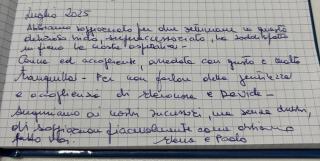 Luglio 2025
Abbiamo soggiornato per due settimane in questo
delizioso nido, supraccessoriato, ha soddisfatto
in pieno le nostre aspettative.
Curata ed accogliente, arredata con gusto e molto
tranquilla! Per non parlare della gentilezza
e accoglienza di Eleonora e Davide.
Auguriamo ai nostri successori, ma senza dubbi,
di soggiornare piacevolmente come abbiamo
fatto noi.
Elena e Paolo